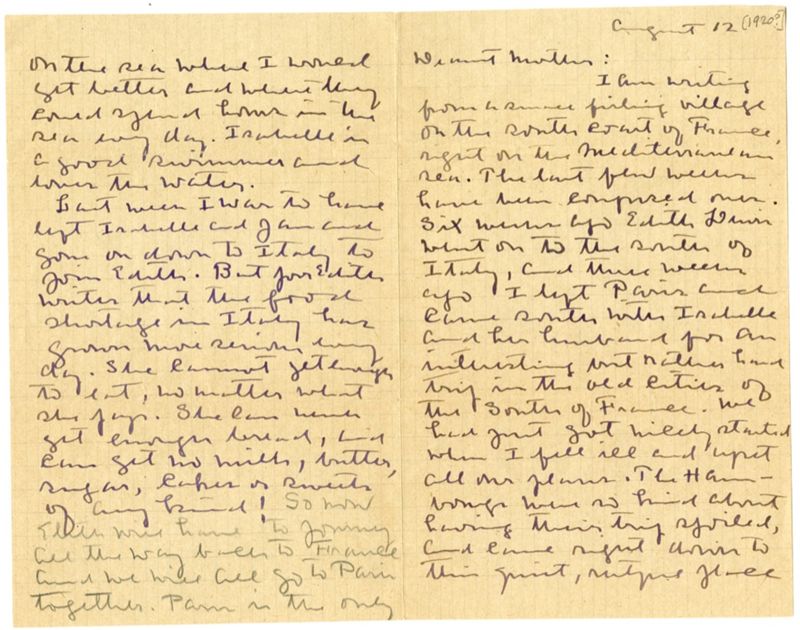 August 12 [1920?]
Dearest Mother:
I am writing
from a small fishing village
on the south coast of France,
right on the Mediterranean
sea. The last few weeks
have been confused ones.
Six weeks ago Edith Lewis
went on to the south of
Italy, and three weeks
ago I left Paris and
came south with Isabelle
and her husband for an
interesting but rather hard
trip in the old cities of
the South of France. We
had just got nicely started
when I fell ill and upset
all our plans. The Ham-
bourgs were so kind about
having their trip spoiled,
and came right down to
this quiet, restful place
on the sea where I would
get better and where they
could spend hours in the
sea every day. Isabelle is
a good swimmer and
loves the water.
Last week I was to have
left Isabelle and Jan and
gone on down to Italy to
join Edith. But poor Edith
writes that the food
shortage in Italy has
grown more serious every
day. She cannot get enough
to eat, no matter what
she pays. She can never
get enough bread, and
can get no milk, butter,
sugar, cakes or sweets
of any kind! So now
Edith will have to journey
all the way back to France
and we will all go to Paris
together. Paris is the only